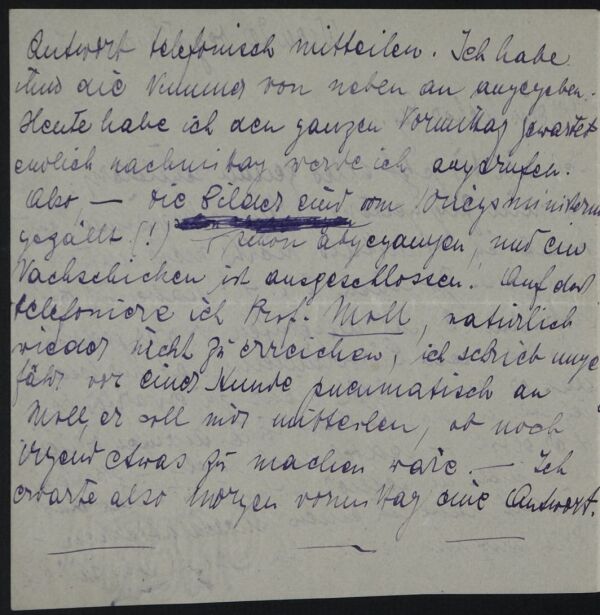 Antwort telefonisch mitteilen. Ich habe
ihnen die Nummer von neben an angegeben.
Heute habe ich den ganzen Vormittag gewartet
endlich nachmittag werde ich angerufen.
Also, — die Bilder sind vom Kriegsministerium
gezählt (!) schon abgegangen, und ein
Nachschicken ist ausgeschlossen! Auf das
telefoniere ich Prof. Moll, natürlich
wieder nicht zu erreichen, ich schrieb unge
fähr vor einer Stunde pneumatisch an
Moll, er soll mir mitteilen, ob noch
irgend etwas zu machen wäre. — Ich
erwarte also morgen vormittag eine Antwort.